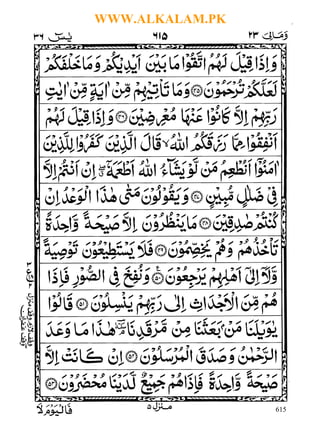 WWW.ALKALAM.PK
وَمَالِیَ ۲۳
۶۱۵
یٰسٓ ۳۶
وَاِذَا قِیْلَ لَهُمُ اتَّقُوْا مَا بَیْنَ اَیْدِیْكُمْ وَمَا خَلْفَكُمْ
لَعَلَّكُمْ تُرْحَمُوْنَ ۝۴۵ وَمَا تَاْتِیْهِمْ مِّنْ اٰیَةٍ مِّنْ اٰیٰتِ
رَبِّهِمْ اِلَّا كَانُوْا عَنْهَا مُعْرِضِیْنَ ۝۴۶ وَاِذَا قِیْلَ لَهُمْ
اَنْفِقُوْا مِمَّا رَزَقَكُمُ اللّٰهُ ۙ قَالَ الَّذِیْنَ كَفَرُوْا لِلَّذِیْنَ
اٰمَنُوْۤا اَنُطْعِمُ مَنْ لَّوْ یَشَآءُ اللّٰهُ اَطْعَمَهٗۤ ۖ اِنْ اَنْتُمْ اِلَّا
فِیْ ضَلٰلٍ مُّبِیْنٍ ۝۴۷ وَیَقُوْلُوْنَ مَتٰی هٰذَا الْوَعْدُ اِنْ
كُنْتُمْ صٰدِقِیْنَ ۝۴۸ مَا یَنْظُرُوْنَ اِلَّا صَیْحَةً وَّاحِدَةً
تَاْخُذُهُمْ وَهُمْ یَخِصِّمُوْنَ ۝۴۹ فَلَا یَسْتَطِیْعُوْنَ تَوْصِیَةً
وَّلَاۤ اِلٰۤی اَهْلِهِمْ یَرْجِعُوْنَ ۝۵۰ وَنُفِخَ فِی الصُّوْرِ فَاِذَا
هُمْ مِّنَ الْاَجْدَاثِ اِلٰی رَبِّهِمْ یَنْسِلُوْنَ ۝۵۱ قَالُوْا
یٰوَیْلَنَا مَنْۢ بَعَثَنَا مِنْ مَّرْقَدِنَا ۘ هٰذَا مَا وَعَدَ
الرَّحْمٰنُ وَصَدَقَ الْمُرْسَلُوْنَ ۝۵۲ اِنْ كَانَتْ اِلَّا
صَیْحَةً وَّاحِدَةً فَاِذَا هُمْ جَمِیْعٌ لَّدَیْنَا مُحْضَرُوْنَ ۝۵۳
فَالْیَوْمَ لَا
منزل ۵
615